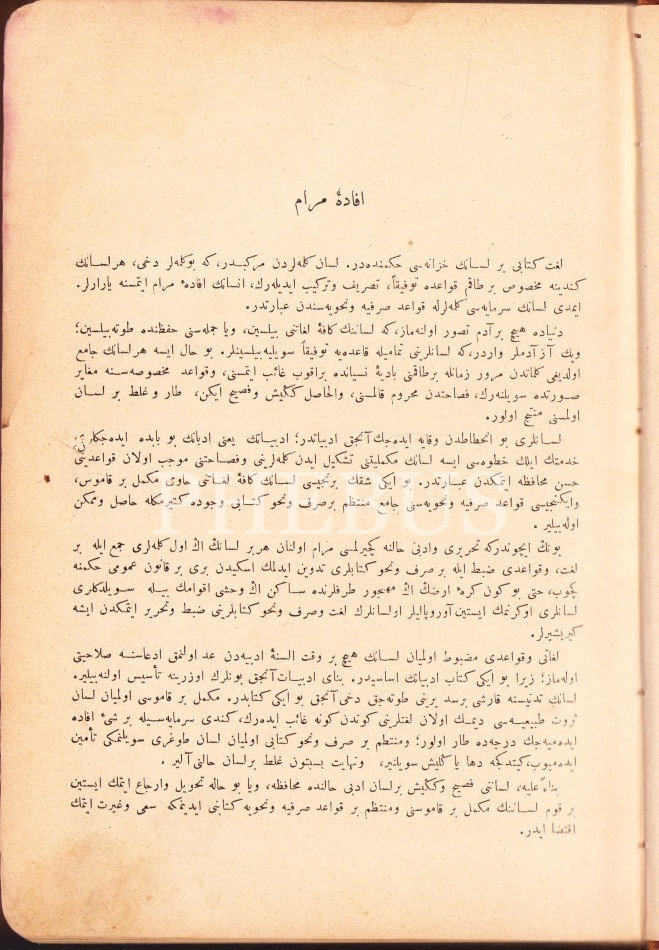 افادهٔ مرام
لغت كتابی بر لسانك خزانه‌سی حكمنده‌در. لسان كله‌لردن مركبدر، كه بوكله‌لر دخی، هر لسانك
كندینه مخصوص بر طاقم قواعده توفیقاً، تصریف وتركیب ایدیله‌رك، انسانك افادهٔ مرام ایتمسنه یارارلر.
ایمدی لسانك سرمایه‌سی كله‌لرله قواعد صرفیه ونحویه‌سندن عبارتدر.
دنیاده هیچ بر آدم تصور اولنه‌ماز، كه لساننك كافهٔ لغاتنی بیلسین، ویا جمله‌سنی حفظنده طوته‌بیلسین؛
وپك آز آدملر واردر، كه لسانلرینی تمامیله قاعده‌یه توفیقاً سویلیه‌بیلسینلر. بو حال ایسه هر لسانك جامع
اولدیغی كلماتدن مرور زمانله برطاقمنی بادیهٔ نسیانده براقوب غائب ایتمسنی، وقواعد مخصوصه‌سنه مغایر
صورتده سویلنه‌رك، فصاحتدن محروم قالمسنی، والحاصل كنكیش وفصیح ایكن، طار وغلط بر لسان
اولمسنی منتج اولور.
لسانلری بو انحطاطدن وقایه ایده‌جك آنجق ادبیاتدر؛ ادبیاتك یعنی ادبانك بو بابده ایده‌جكلری
خدمتك ایلك خطوه‌سی ایسه لسانك مكملیتنی تشكیل ایدن كله‌لرینی وفصاحتنی موجب اولان قواعدینی
حسن محافظه ایتمكدن عبارتدر. بو ایكی شقك برنجیسی لسانك كافهٔ لغاتنی حاوی مكمل بر قاموس،
وایكنجیسی قواعد صرفیه ونحویه‌سنی جامع منتظم برصرف ونحو كتابی وجوده كتیرمكله حاصل وممكن
اوله‌بیلیر.
بونك ایچوندركه تحریری وادبی حالنه كچیرلمسی مرام اولنان هربر لسانك اك اول كله‌لری جمع ایله بر
لغت، وقواعدی ضبط ایله بر صرف ونحو كتابلری تدوین ایدلمك اسكیدن بری بر قانون عمومی حكمنه
كچوب، حتی بو كون كرهٔ ارضك اك مهجور طرفلرنده ساكن اك وحشی اقوامك بیله سویلدكلری
لسانلری اوكرنمك ایستین آوروپالیلر اولسانلرك لغت وصرف ونحو كتابلرینی ضبط وتحریر ایتمكدن ایشه
كیریشیرلر.
لغاتی وقواعدی مضبوط اولمیان لسانك هیچ بر وقت السنهٔ ادبیه‌دن عد اولنمق ادعاسنه صلاحیتی
اوله‌ماز؛ زیرا بو ایكی كتاب ادبیاتك اساسیدر. بنای ادبیات آنجق بونلرك اوزرینه تأسیس اولنه‌بیلیر.
لسانك تدنیسنه قارشی برسد یرینی طوته‌جق دخی آنجق بو ایكی كتابدر. مكمل بر قاموسی اولمیان لسان
ثروت طبیعیه‌سی دیمك اولان لغتلرینی كوندن كونه غائب ایده‌رك، كندی سرمایه‌سیله بر شیء افاده
ایده‌میه‌جك درجه‌ده طار اولور؛ ومنتظم بر صرف ونحو كتابی اولمیان لسان طوغری سویلنمكی تأمین
ایده‌میوب، كیتدكجه دها یاكلیش سویلنیر، ونهایت بسبتون غلط بر لسان حالنی آلیر.
بناءً علیه، لساننی فصیح وكنكیش بر لسان ادبی حالنده محافظه، ویا بو حاله تحویل وارجاع ایتمك ایستین
بر قوم لساننك مكمل بر قاموسنی ومنتظم بر قواعد صرفیه ونحویه كتابنی ایدینمكه سعی وغیرت ایتمك
اقتضا ایدر.
PHEBUS